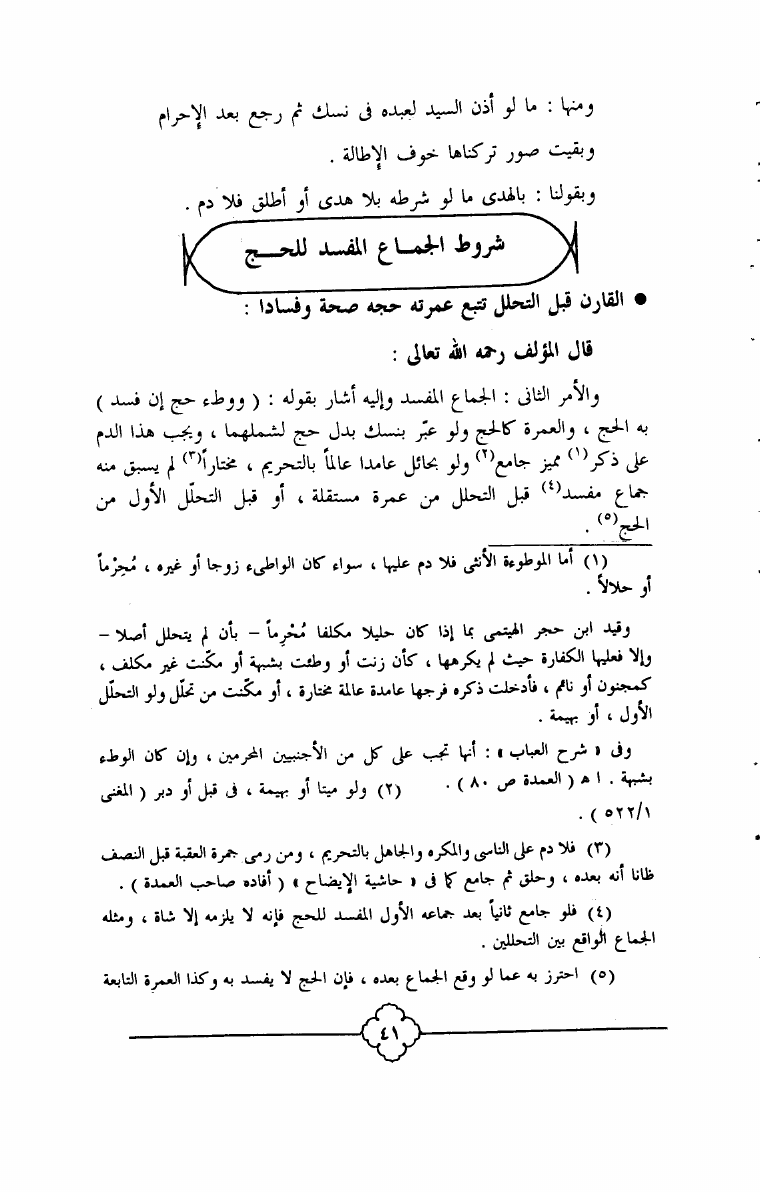 ومنها : ما لو أذن السيد لعبده فى نسك ثم رجع بعد الإحرام
وبقيت صور تركناها خوف الإطالة .
وبقولنا : بالهدى ما لو شرطه بلا هدى أو أطلق فلا دم .
شروط الجمـاع المفسد للحـج
● القارن قبل التحلل تتبع عمرته حجه صحة وفسادا :
قال المؤلف رحمه الله تعالى :
والأمر الثانى : الجماع المفسد وإليه أشار بقوله : ( ووطء حج إن فسد )
به الحج ، والعمرة كالحج ولو عبّر بنسك بدل حج لشملهما ، ويجب هذا الدم
على ذكر(١) مميز جامع(٢) ولو بحائل عامدا عالماً بالتحريم ، مختاراً(٣) لم يسبق منه
جماع مفسد(٤) قبل التحلل من عمرة مستقلة ، أو قبل التحلّل الأول من
الحج(٥) .
(١) أما الموطوءة الأنثى فلا دم عليها ، سواء كان الواطىء زوجا أو غيره ، مُحِرْماً
أو حلالاً .
وقيد ابن حجر الهيتمى بما إذا كان حليلا مكلفا مُحْرِماً – بأن لم يتحلل أصلا –
وإلا فعليها الكفارة حيث لم يكرهها ، كأن زنت أو وطئت بشبهة أو مكّنت غير مكلف ،
كمجنون أو نائم ، فأدخلت ذكره فرجها عامدة عالمة مختارة ، أو مكّنت من تحلّل ولو التحلّل
الأول ، أو بهيمة .
وفى « شرح العباب » : أنها تجب على كل من الأجنبيين المحرمين ، وإن كان الوطء
بشبهة . ا هـ ( العمدة ص ٨٠ ) . (٢) ولو ميتا أو بهيمة ، فى قبل أو دبر ( المغنى
٥٢٢/١ ) .
(٣) فلا دم على الناسى والمكره والجاهل بالتحريم ، ومن رمى جمرة العقبة قبل النصف
ظانا أنه بعده ، وحلق ثم جامع كما فى « حاشية الإيضاح » ( أفاده صاحب العمدة ) .
(٤) فلو جامع ثانياً بعد جماعه الأول المفسد للحج فإنه لا يلزمه إلا شاة ، ومثله
الجماع الواقع بين التحللين .
(٥) احترز به عما لو وقع الجماع بعده ، فإن الحج لا يفسد به وكذا العمرة التابعة
٤١